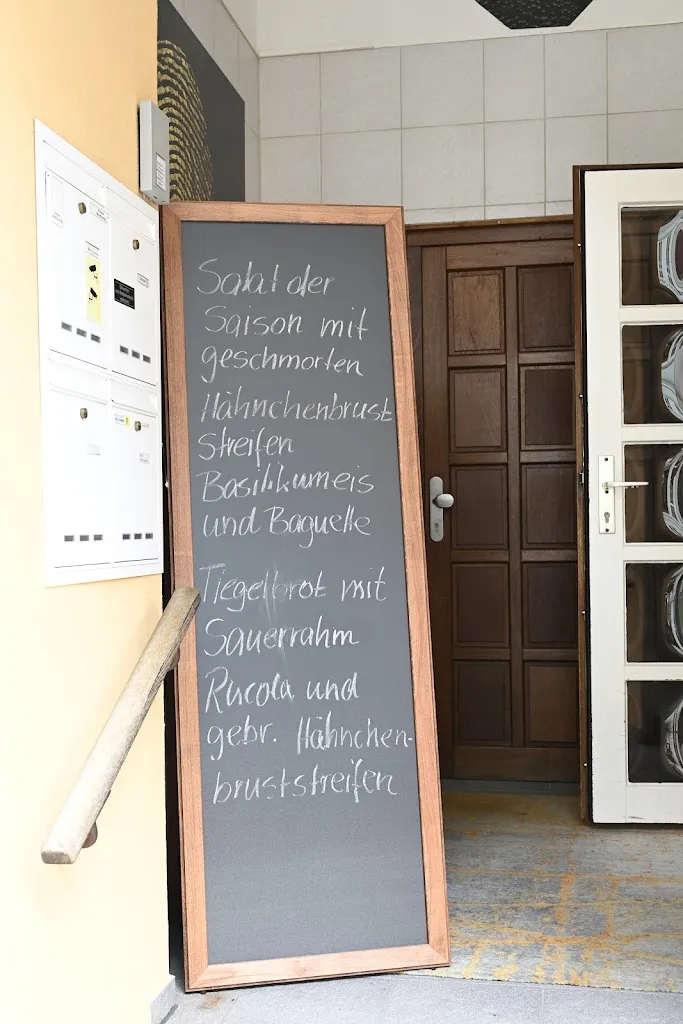 Salat der
Saison mit
geschmorten
Hähnchenbrust
streifen
Basilikumeis
und Baguette
Tiegelbrot mit
Sauerrahm
Rucola und
gebr. Hähnchen-
bruststreifen